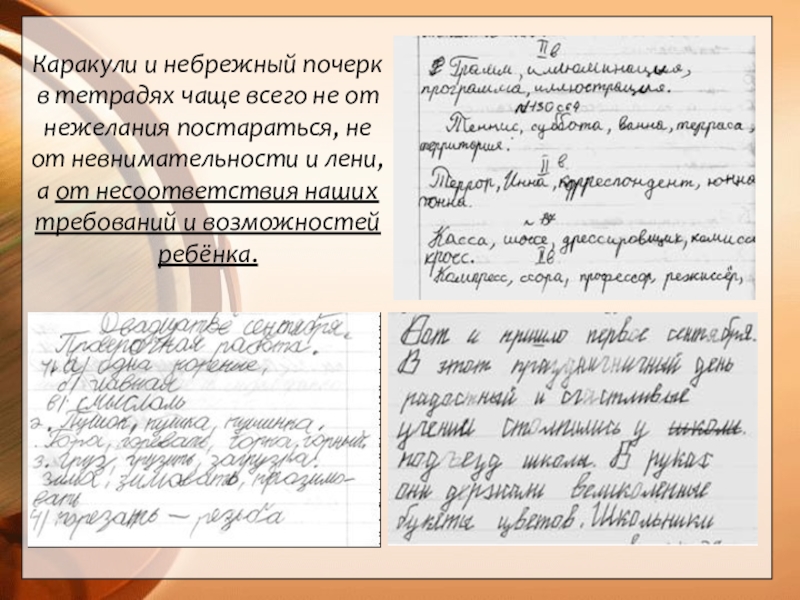 Каракули и небрежный почерк
в тетрадях чаще всего не от
нежелания постараться, не
от невнимательности и лени,
а от несоответствия наших
требований и возможностей
ребёнка.
II в
Грамм, иллюминация,
программа, иллюстрация.
№130 с64
Теннис, суббота, ванна, терраса,
территория.
II в.
Террор, Инна, корреспондент, юнна
тонна.
Касса, шоссе, дрессировщик, комисси
кросс. IIв.
Компресс, ссора, профессор, режиссёр,
Двадцатье сентября.
Проверочная работа.
а) одна корение,
б) главная
в) смыслоль
2. Пушок, пушка, пушинка.
Гора, горевать, горка, горный.
3. Груз, грузить, загрузка.
Зима, зимовать, прозимо-
вать
4) порезать — резьба
Вот и пришло первое сентября.
В этот праздничничный день
радостный и счастливые
ученики столпились у школы.
подъезд школы. В руках
они держали великоленные
букеты цветов. Школьники